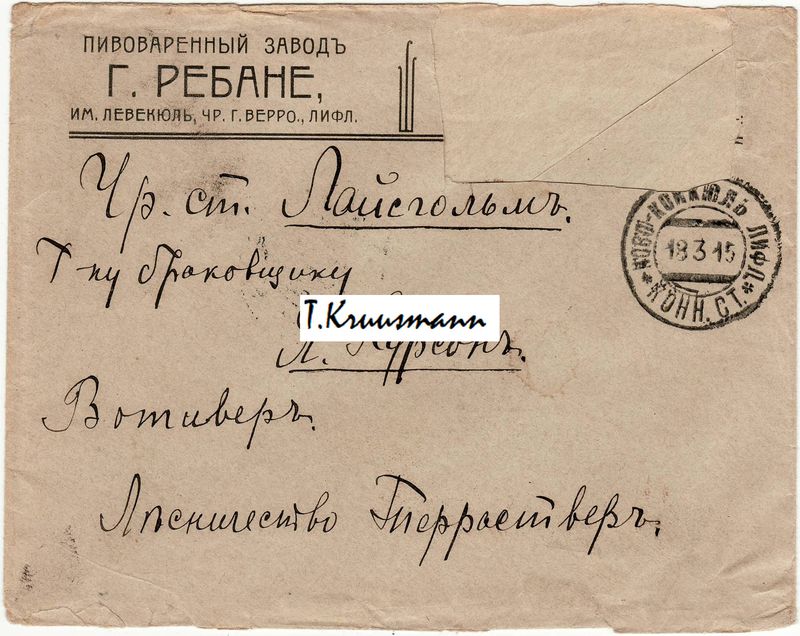 ПИВОВАРЕННЫЙ ЗАВОДЪ
Г. РЕБАНЕ,
ИМ. ЛЕВЕКЮЛЬ, ЧР. Г. ВЕРРО., ЛИФЛ.
Чр. ст. Лайсгольмъ.
Г-ну браковщику
T.Kruusmann
Л. Курсонъ.
Вотиверъ.
Лѣсничество Терраствезъ.
КОЙКЮЛЬ ЛИФЛ.
18 3 15
КОНН. СТ.